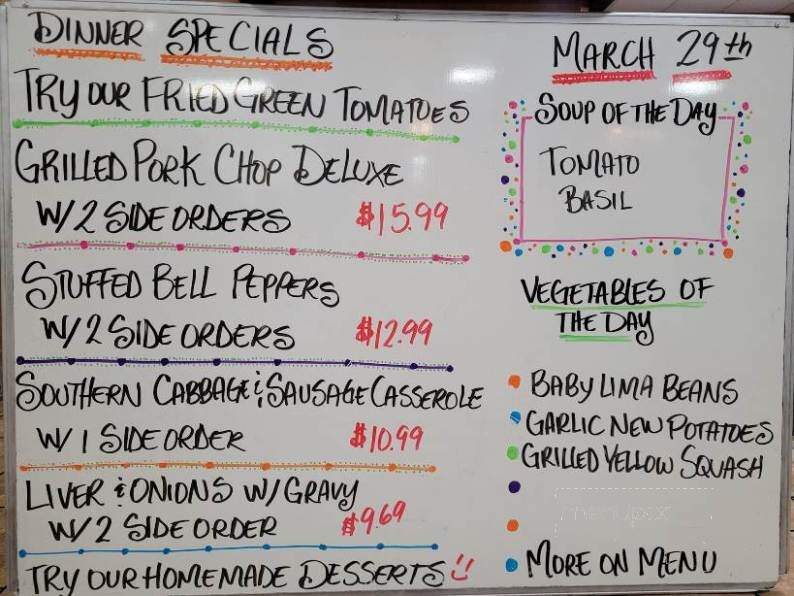 DINNER SPECIALS
TRY OUR FRIED GREEN TOMATOES
GRILLED PORK CHOP DELUXE
W/ 2 SIDE ORDERS $15.99
STUFFED BELL PEPPERS
W/ 2 SIDE ORDERS $12.99
SOUTHERN CABBAGE & SAUSAGE CASSEROLE
W/ 1 SIDE ORDER $10.99
LIVER & ONIONS W/ GRAVY
W/ 2 SIDE ORDER $9.69
TRY OUR HOMEMADE DESSERTS
MARCH 29th
SOUP OF THE DAY
TOMATO
BASIL
VEGETABLES OF
THE DAY
BABY LIMA BEANS
GARLIC NEW POTATOES
GRILLED YELLOW SQUASH
MORE ON MENU